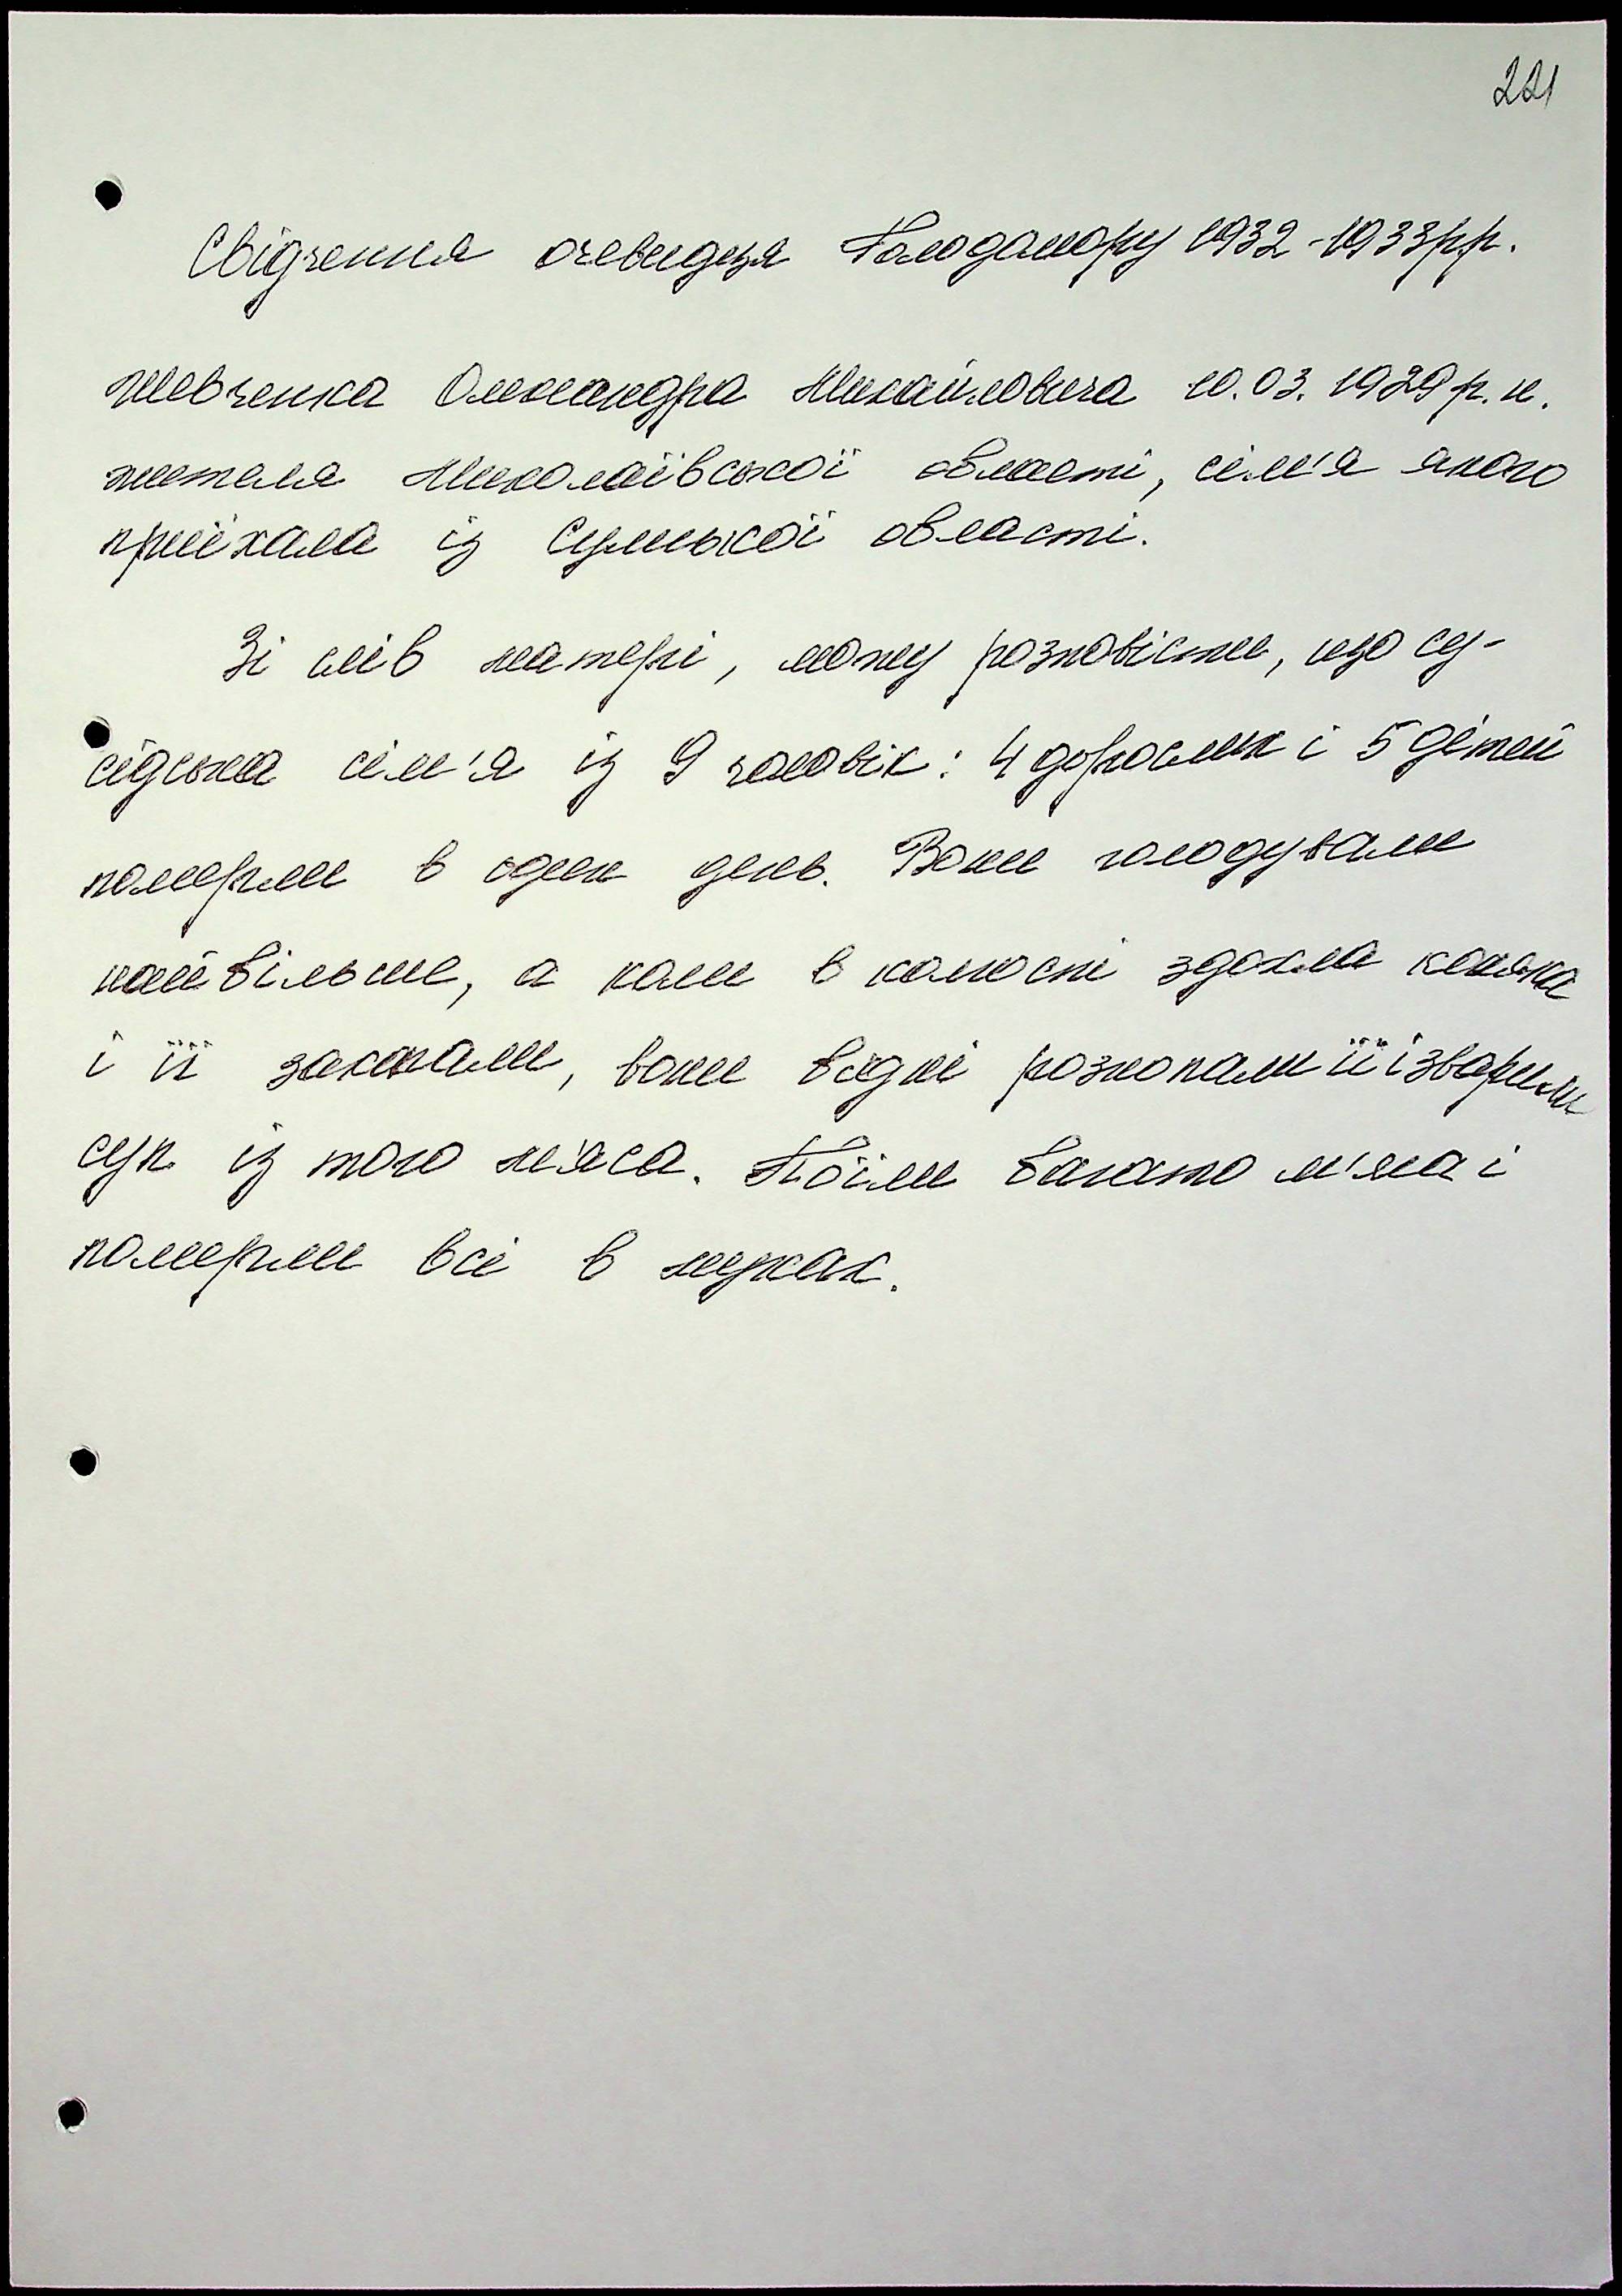 221
Свідчення очевидця Голодомору 1932-1933рр.
Шевченка Олександра Михайловича 10.03.1929р.н.
жителя Миколаївської області, сім'я якого
приїхала із Сумської області.
Зі слів матері, можу розповісти, що су-
сідська сім'я із 9 чоловік: 4 дорослих і 5 дітей
померли в один день. Вони голодували
найбільше, а коли в колгоспі здохла коняка
і її закопали, вони бідні розкопали її і зварили
суп із того м'яса. Поїли багато м'яса і
померли всі в муках.